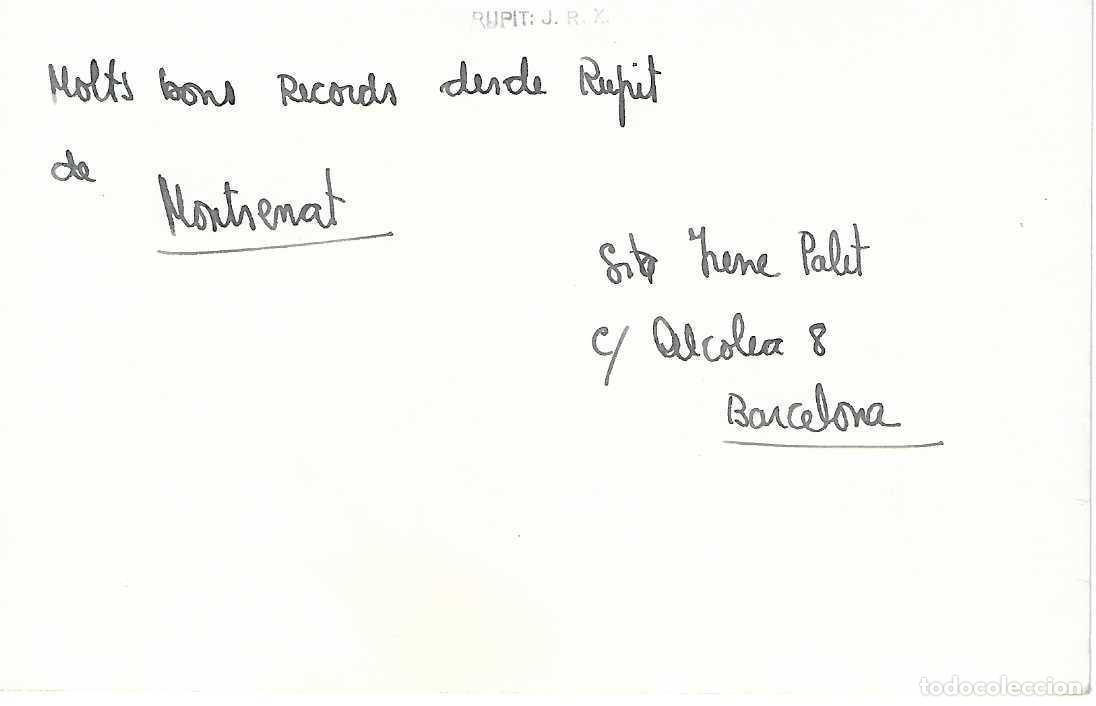 RUPIT: J. R. X.
Molts bons Records desde Rupit
de
Montserrat
Srta Irene Palet
c/ Alcolea 8
Barcelona
todocoleccion